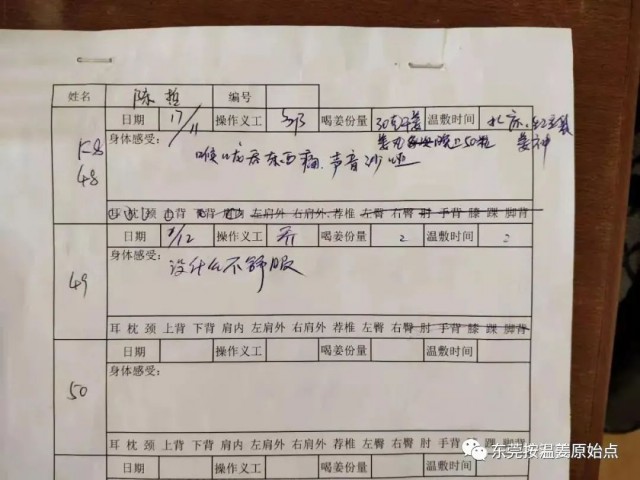 姓名 陈哲 编号
日期 17/11 操作义工 喝姜份量 30克 温敷时间
48 身体感受:
喉咙 东西痛 声音沙哑
耳 枕 颈 上背 下背 肩内 左肩外 右肩外 荐椎 左臀 右臀 肘 手背 膝 踝 脚背
日期 1/12 操作义工 喝姜份量 2 温敷时间 2
49 身体感受:
没什么不舒服
耳 枕 颈 上背 下背 肩内 左肩外 右肩外 荐椎 左臀 右臀 肘 手背 膝 踝 脚背
日期 操作义工 喝姜份量 温敷时间
50 身体感受:
耳 枕 颈 上背 下背 肩内 左肩外 右肩外 荐椎 左臀 右臀 肘 手背 膝 踝 脚背
日期 操作义工 喝姜份量 温敷时间
东莞按温姜原始点